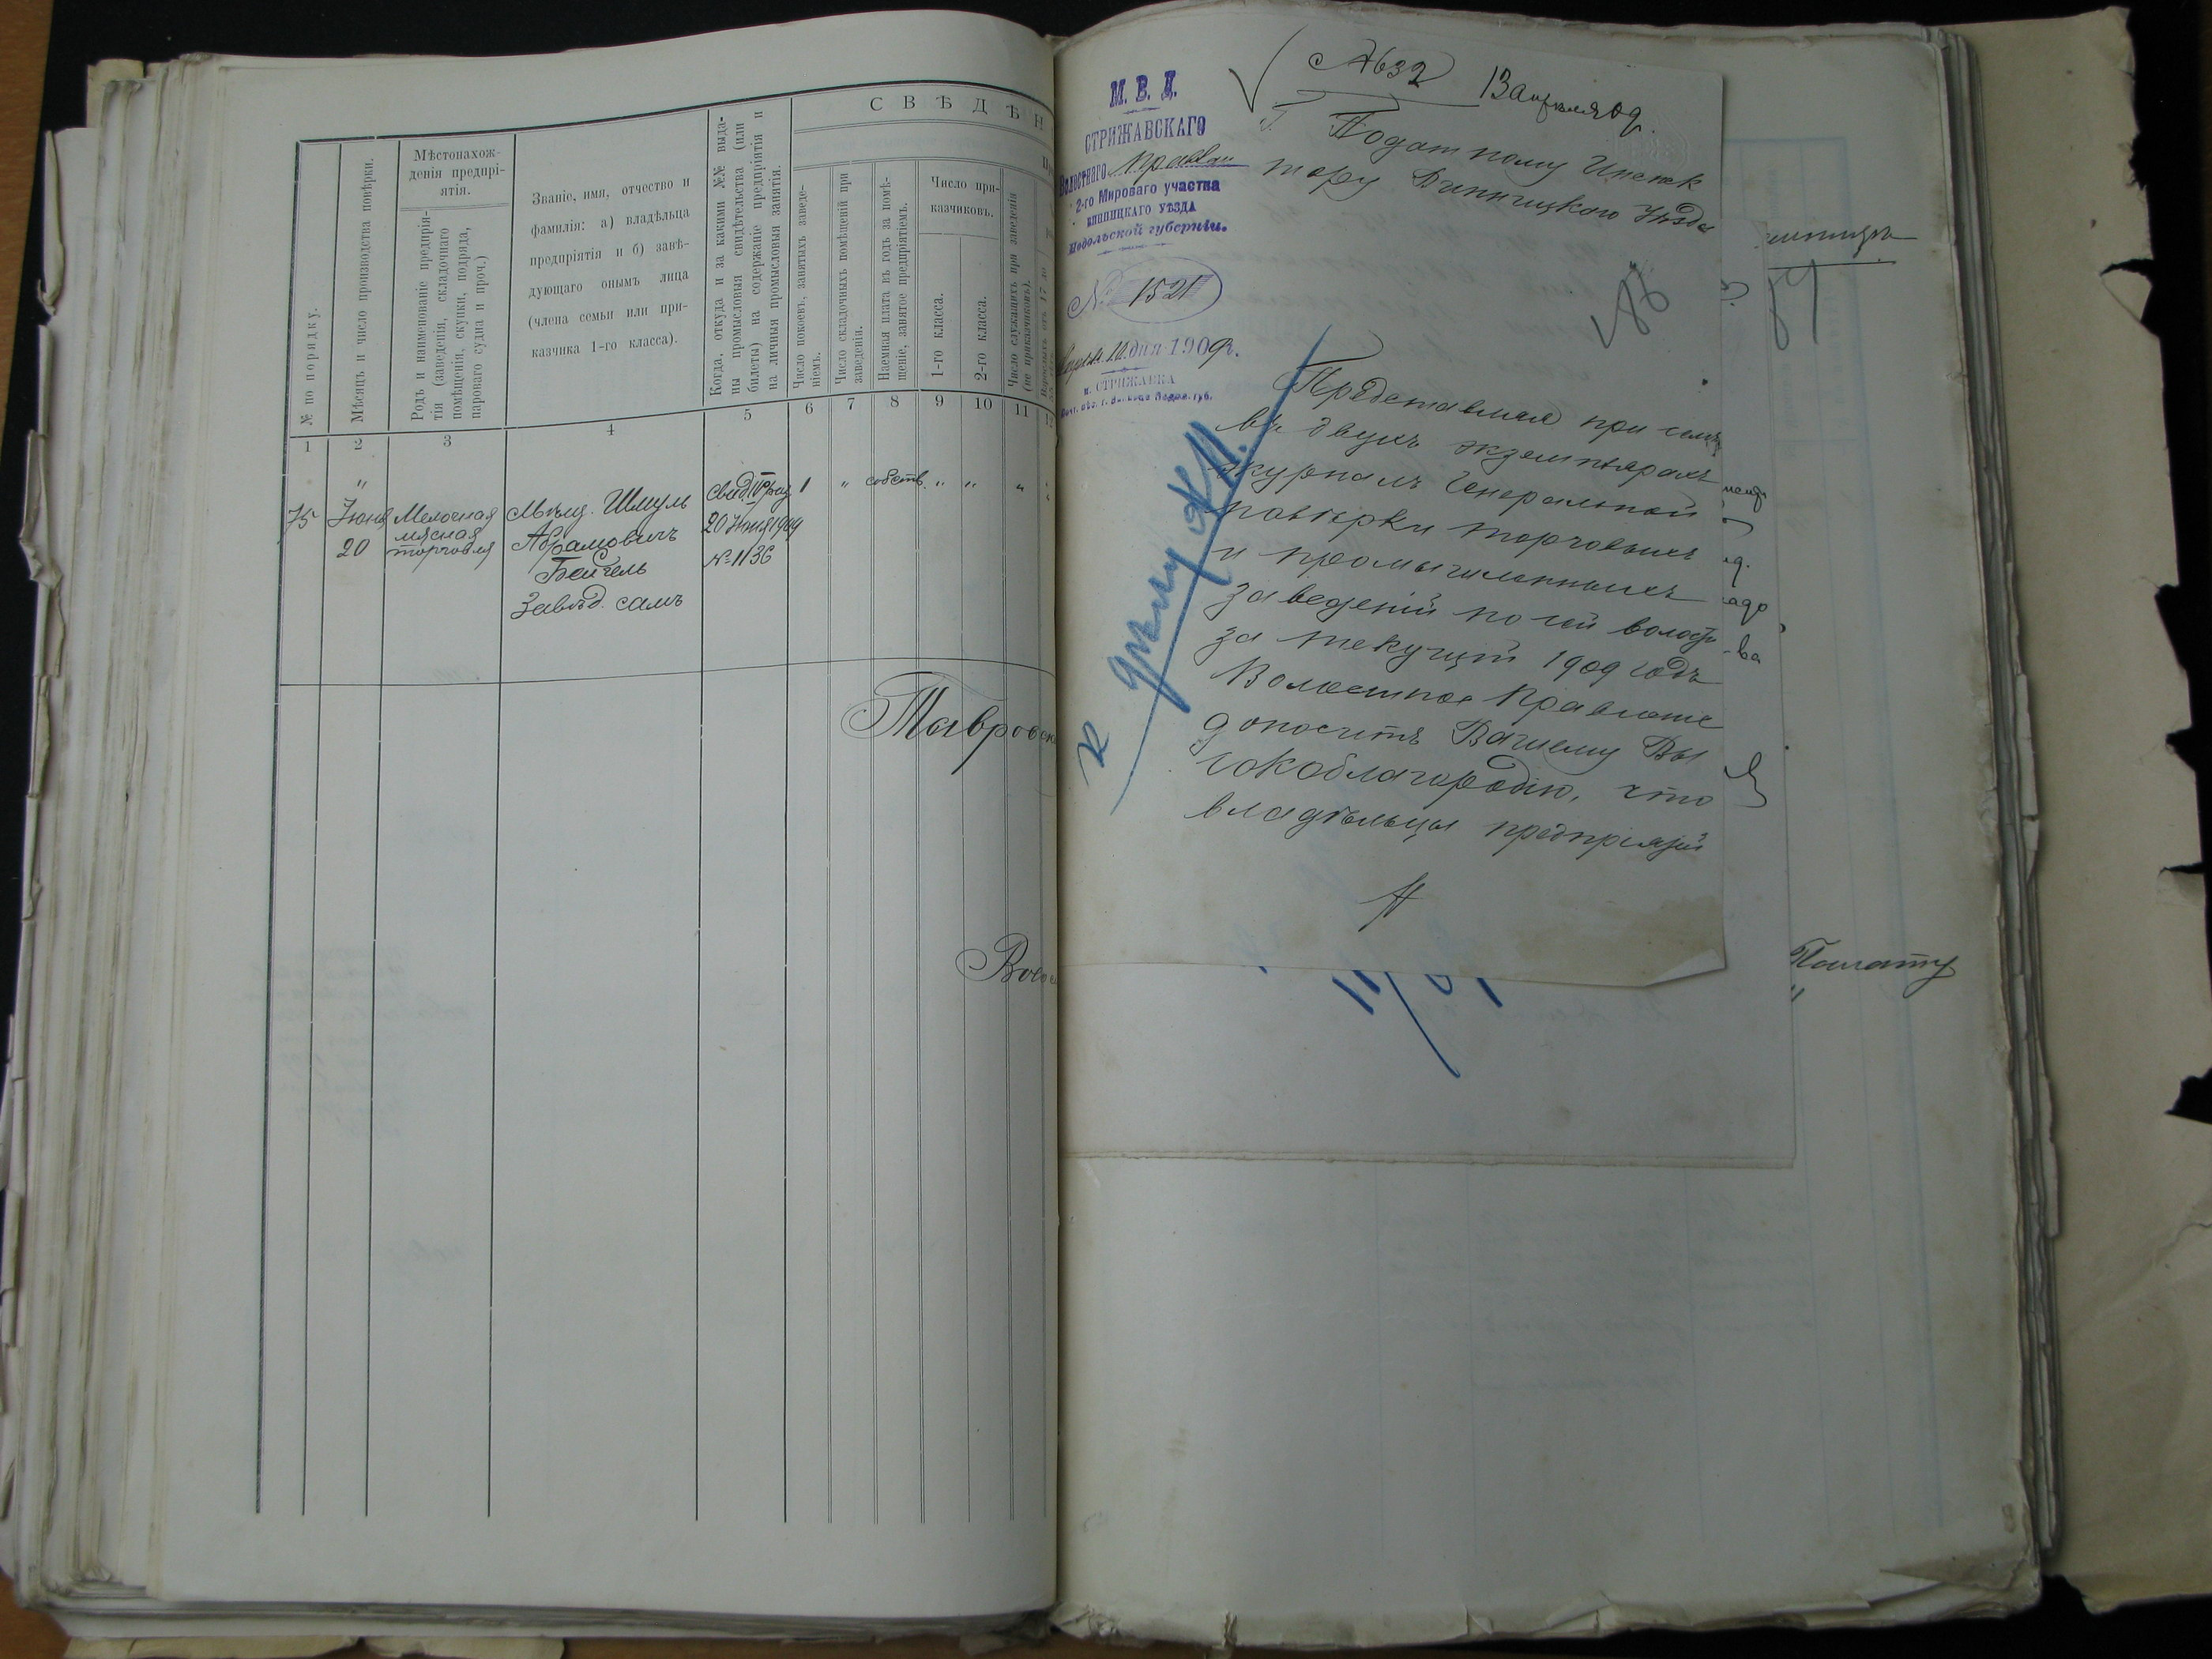 СВѢДѢН
№ по порядку.
Мѣсяцъ и число производства повѣрки.
Мѣстонахож-
денія предпрі-
ятія.
Родъ и наименованіе предпрія-
тія (заведенія, складочнаго
помѣщенія, скупки, подряда,
пароваго судна и проч.)
Званіе, имя, отчество и
фамилія: а) владѣльца
предпріятія и б) завѣ-
дующаго онымъ лица
(члена семьи или при-
казчика 1-го класса).
Когда, откуда и за какими №№ выда-
ны промысловыя свидѣтельства (или
билеты) на содержаніе предпріятія и
на личныя промысловыя занятія.
Число покоевъ, занятыхъ заведе-
ніемъ.
Число складочныхъ помѣщеній при
заведеніи.
Наемная плата въ годъ за помѣ-
щеніе, занятое предпріятіемъ.
Число при-
казчиковъ.
1-го класса.
2-го класса.
Число служащихъ при заведеніи
(не приказчиковъ).
1 2 3 4 5 6 7 8 9 10 11 12
75
"
Іюня
20
Мелочная
мясная
торговля
Мѣщ. Шмуль
Абрамовичъ
Бейгель
Завѣд. самъ
20 Іюня 1909
№ 1136
1 " собств. " " "
М. В. Д.
СТРИЖАВСКАГО
Волостного Правлен
2-го Мироваго участка
ВИННИЦКАГО УѢЗДА
Подольской губерніи.
№ 1521
Апрѣля 10 дня 1909 г.
м. СТРИЖАВКА
№ 632 13 апрѣля 09 г.
Г. Податному Инспек
тору Винницкаго Уѣзда
Представляя при семъ
въ двухъ экземплярахъ
журналъ Генеральной
повѣрки торговыхъ
и промышленныхъ
заведеній по сей волости
за текущій 1909 годъ
Волостное Правленіе
доноситъ Вашему Вы
сокоблагородію, что
владѣльцы предпріятій
к дѣлу
Палату